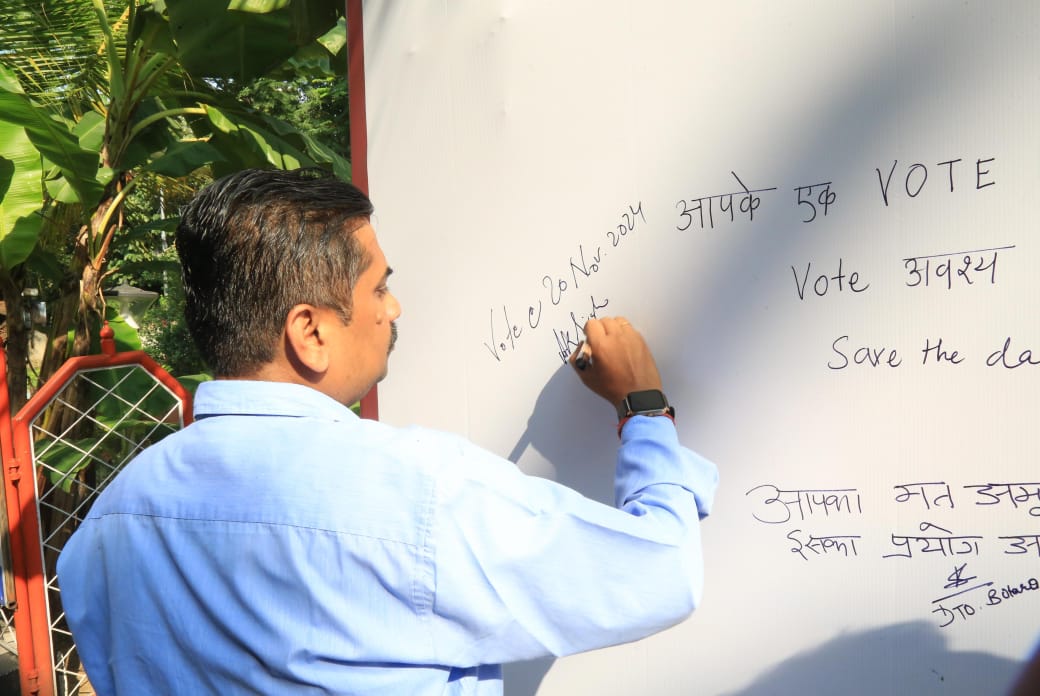 Vote @ 20 Nov. 2024
आपके एक VOTE
Vote अवश्य
Save the da
आपका मत अमू
इसका प्रयोग अ
DTO. Bokaro